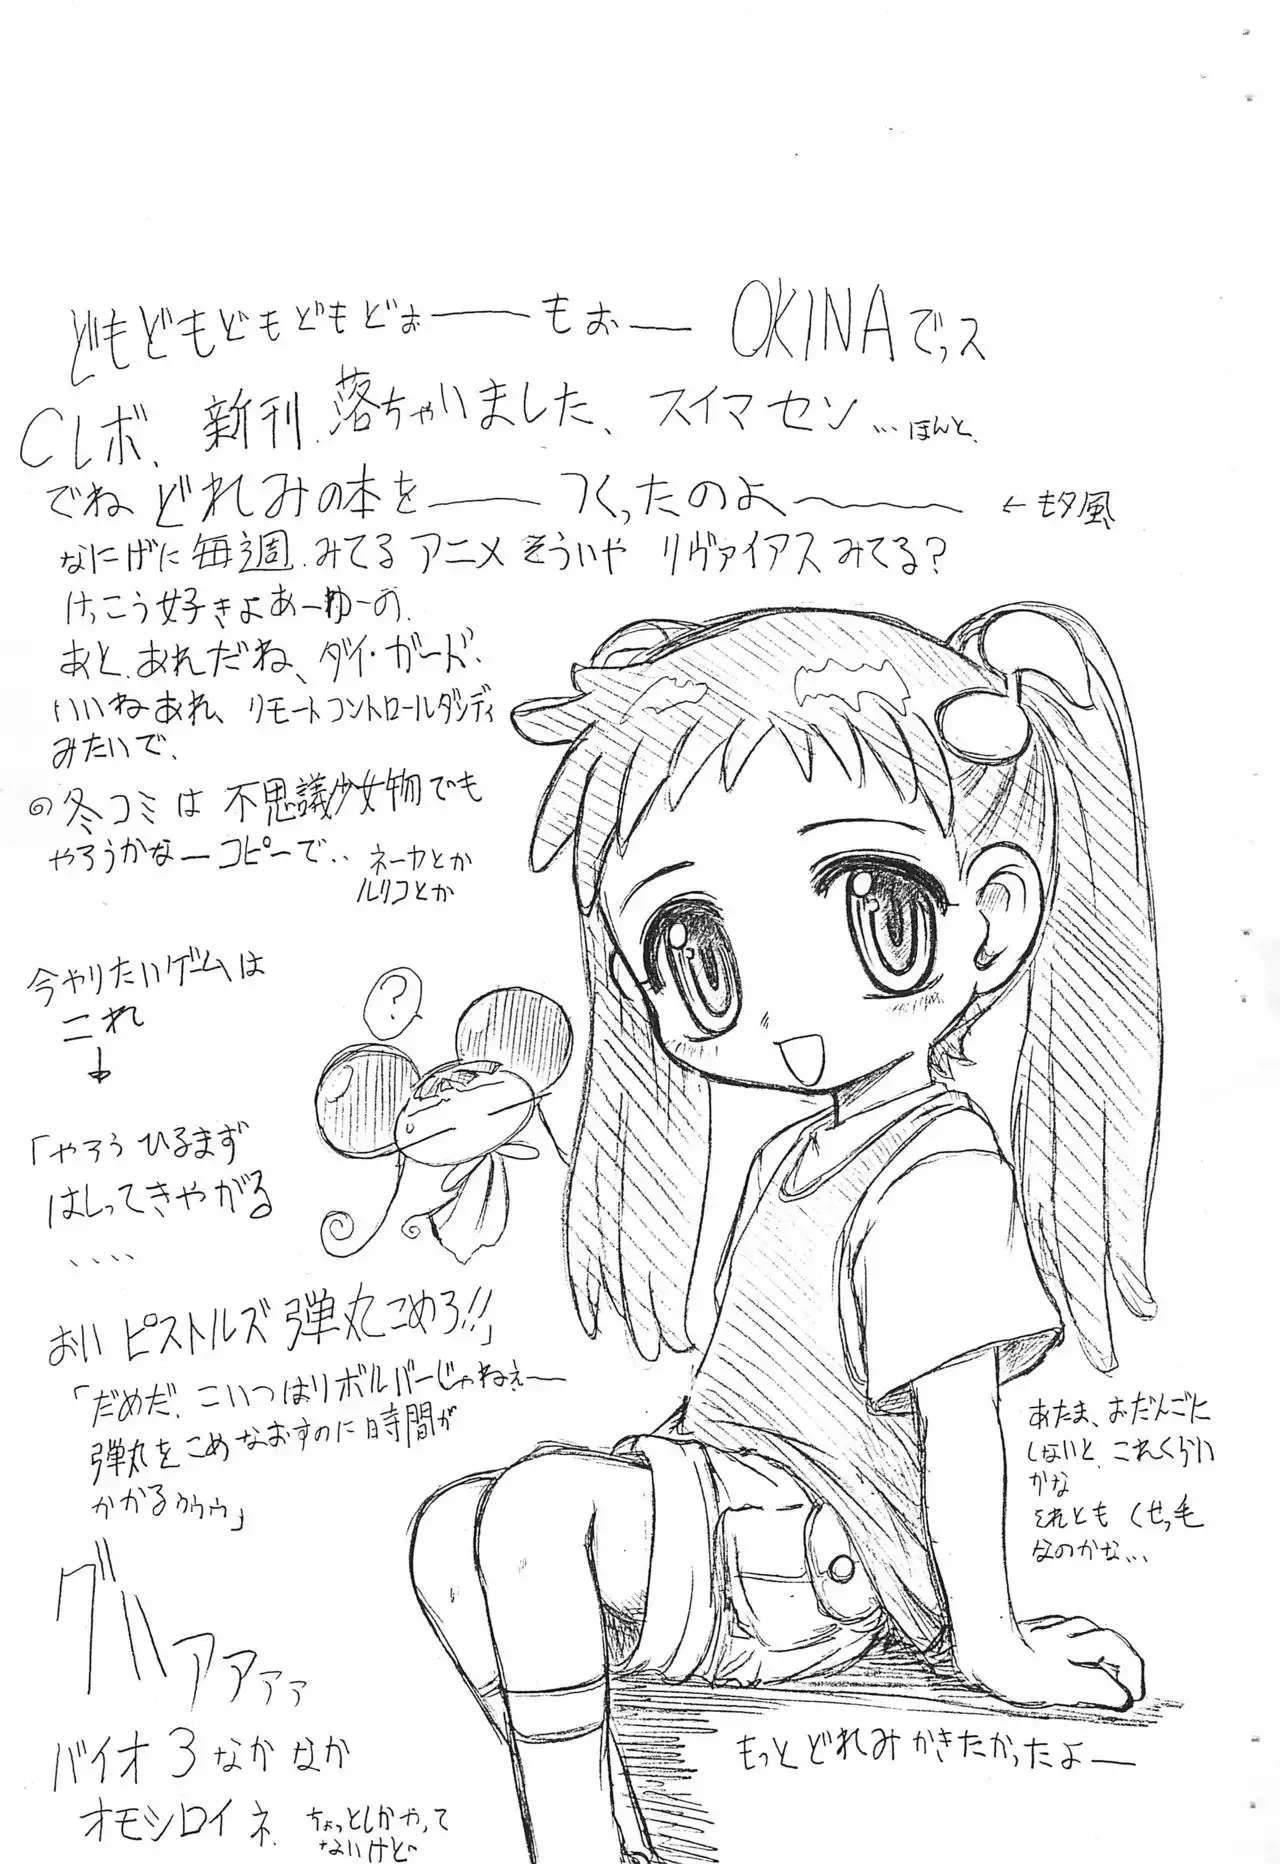 どもどもどもどもどぉーーもぉー OKINAでっス
CLボ、新刊.落ちゃいました、スイマセン…ほんと.
でね どれみの本をーーつくったのよ〜〜 ←モタ風
なにげに毎週.みてるアニメ そういや リヴァイアスみてる?
けっこう好きよあーゆーの.
あと、あれだね、ダイ・ガード.
いいねあれ、リモートコントロールダンディ
みたいで、
の冬コミは 不思議少女物でも
やろうかなーコピーで‥ ネーカとか
ルリコとか
今やりたいゲームは
これ
↓
?
「やろう ひるまず
はしってきやがる
、、、、
おい ピストルズ 弾丸こめろ!!」
「だめだ.こいつはリボルバーじゃねぇー
弾丸をこめなおすのに時間が
かかるゥゥゥ」
グハァァァァ
バイオ3なかなか
オモシロイネ. ちょっとしかやって
ないけど
あたま、おだんごに
しないと、これくらい
かな
それとも くせっ毛
なのかな…
もっとどれみかきたかったよー